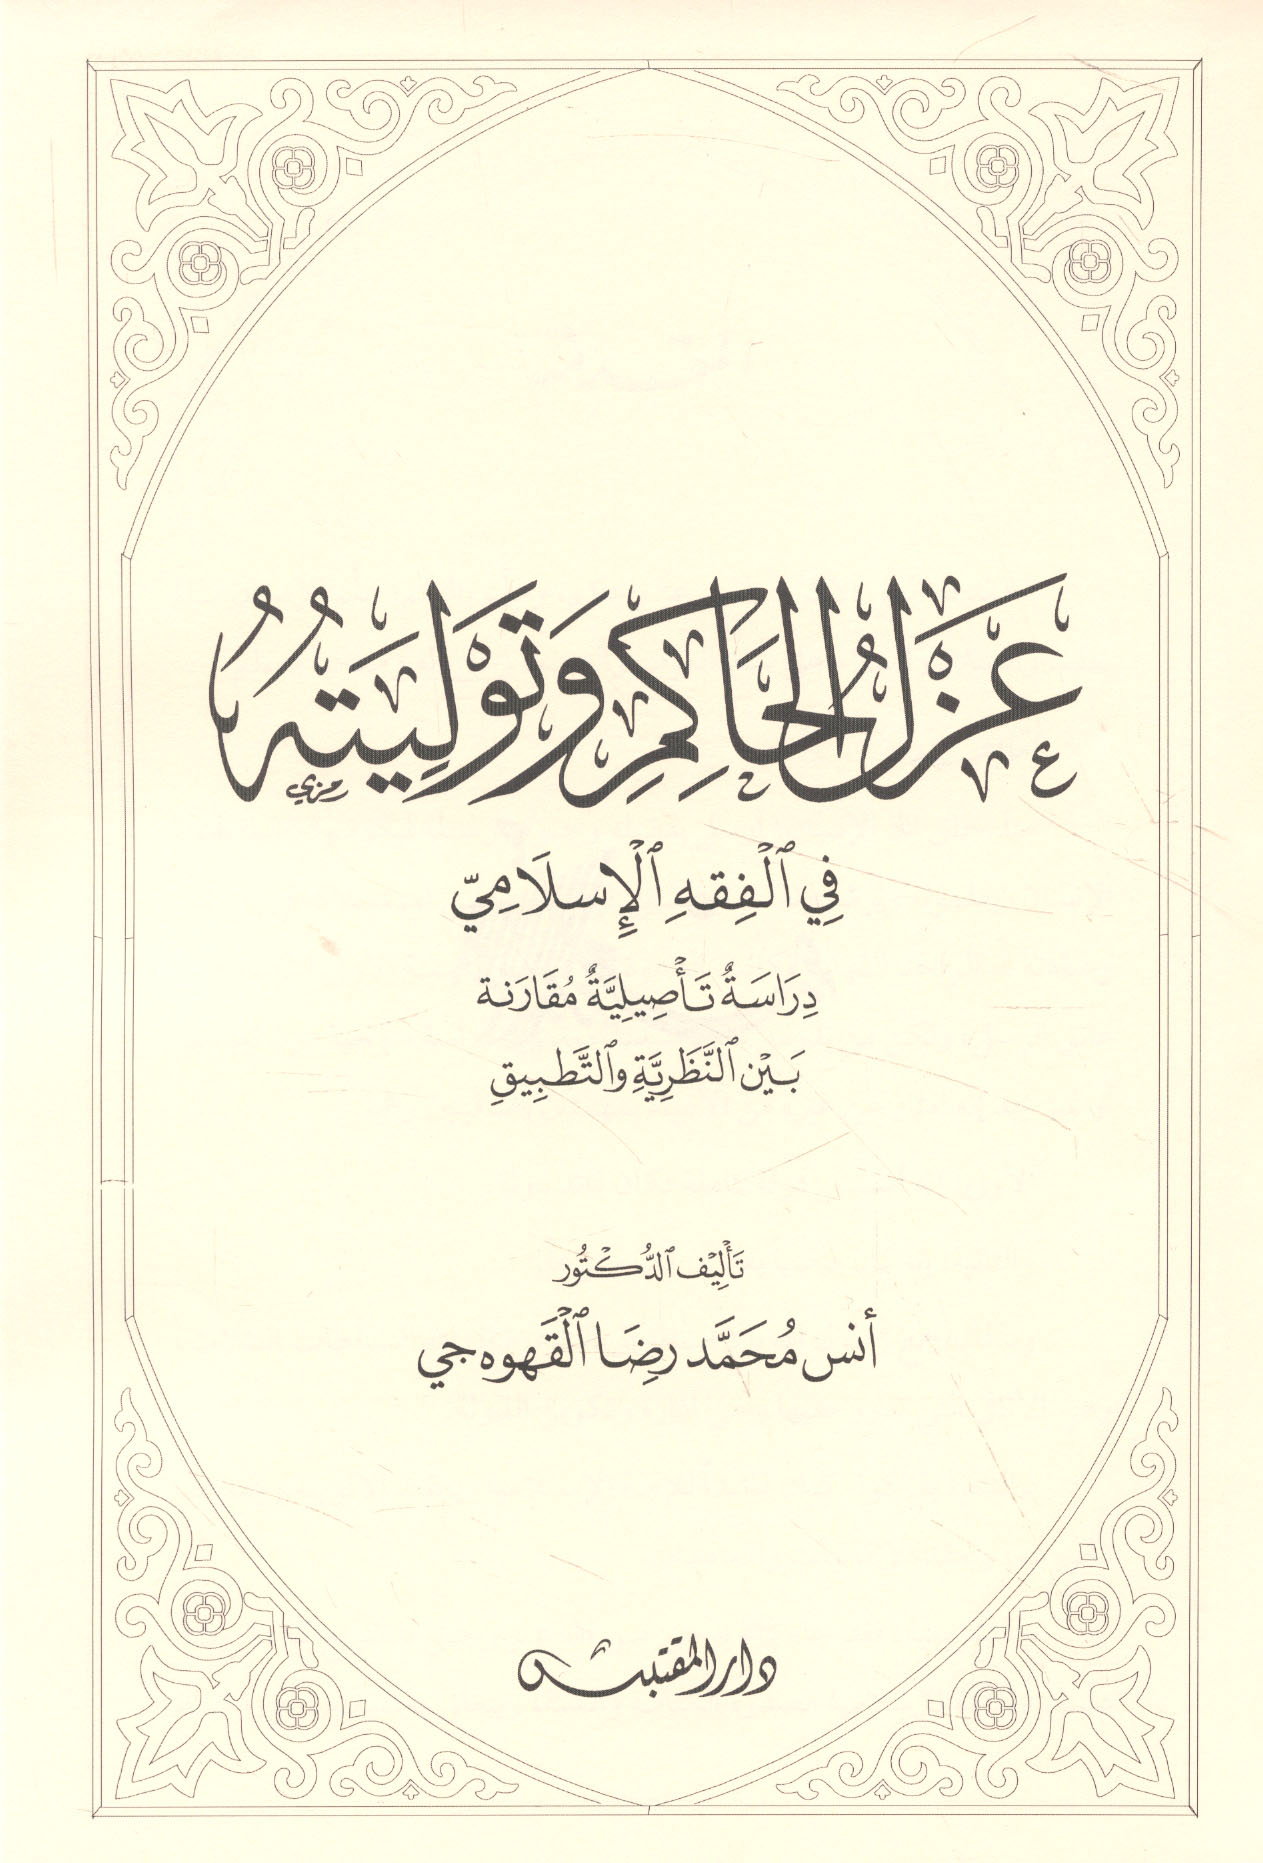 عَزْلُ الحَاكِمِ وَتَوْلِيَتُهُ
رمزي
فِي ٱلْفِقهِ ٱلْإِسلَامِيّ
دِرَاسَةٌ تَأْصِيلِيَّةٌ مُقَارَنة
بَيْن ٱلنَّظَرِيَّةِ وٱلتَّطبِيقِ
تَأْلِيْف ٱلدُّكْتُور
أنس مُحَمَّد رِضَا ٱلْقَهوه جي
دار المقتبس